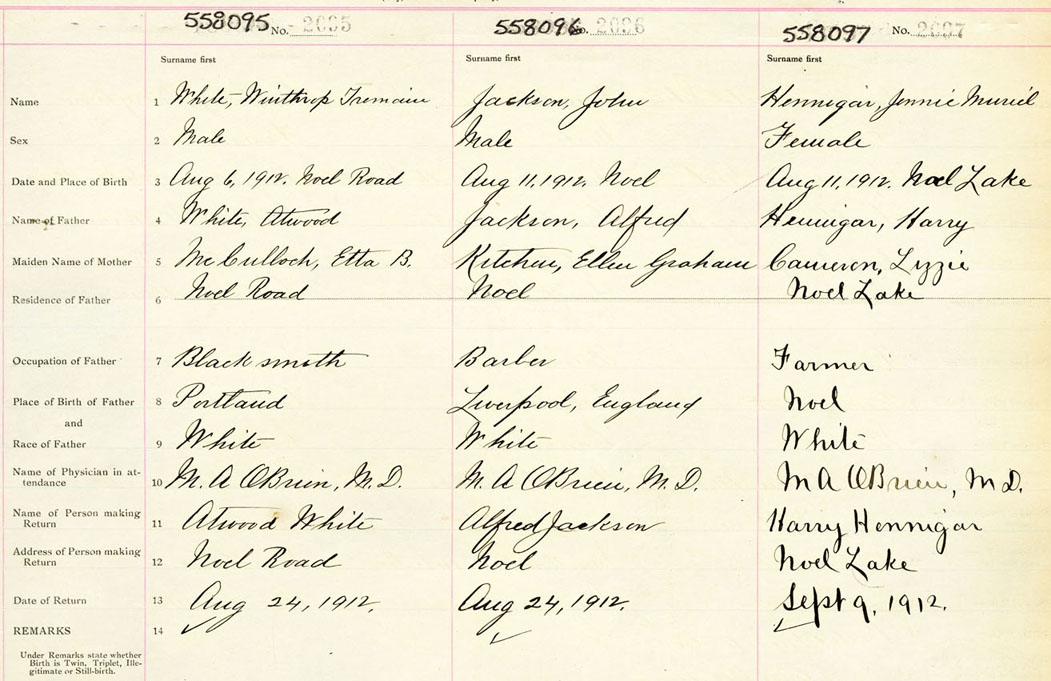 558095 No. 2095 558096 No. 2096 558097 No. 2097
Surname first Surname first Surname first
Name 1 White, Winthrop Tremaine Jackson, John Hennigar, Jennie Muriel
Sex 2 Male Male Female
Date and Place of Birth 3 Aug 6, 1912. Noel Road Aug 11, 1912. Noel Aug 11, 1912. Noel Lake
Name of Father 4 White, Atwood Jackson, Alfred Hennigar, Harry
Maiden Name of Mother 5 McCulloch, Etta B. Kitchen, Ellen Graham Cameron, Lizzie
Residence of Father 6 Noel Road Noel Noel Lake
Occupation of Father 7 Blacksmith Barber Farmer
Place of Birth of Father 8 Portland Liverpool, England Noel
and
Race of Father 9 White White White
Name of Physician in at-
tendance 10 M. A OBrien, M.D. M. A. OBrien, M. D. M A OBrien, M D.
Name of Person making
Return 11 Atwood White Alfred Jackson Harry Hennigar
Address of Person making
Return 12 Noel Road Noel Noel Lake
Date of Return 13 Aug 24, 1912. Aug 24, 1912. Sept 9, 1912.
REMARKS 14
Under Remarks state whether
Birth is Twin, Triplet, Ille-
gitimate or Still-birth.